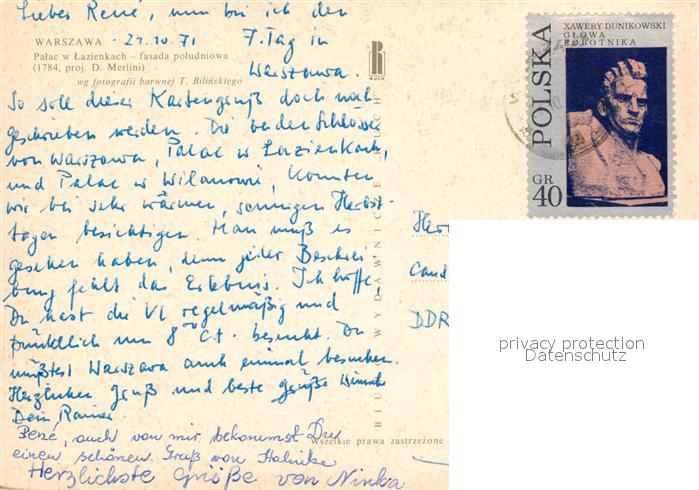 Lieber René, nun bin ich den
WARSZAWA · 21.10.71 7. Tag in
Pałac w Łazienkach – fasada południowa
(1784, proj. D. Merlini) Warszawa.
wg fotografii barwnej T. Bilińskiego
RUCH
So solle dieser Kartengruß doch noch
geschrieben werden. Die beiden Schlösser
von Warszawa, Palac w Lazienkach,
und Palac w Wilanowie, konnten
wir bei sehr warmen, sonnigen Herbst-
tagen besichtigen. Man muß es
gesehen haben, denn jeder Beschrei
bung fehlt das Erlebnis. Ich hoffe,
Du hast die VL regelmäßig und
pünktlich um 8 c.t. besucht. Du
müßtest Warszawa auch einmal besuchen.
Herzlichen Gruß und beste Grüße
Dein Rainer
René, auch von mir bekommst Du
einen schönen Gruß von Halinka
Herzlichste Grüße von Ninka
BIURO WYDAWNICZE RUCH
Wszelkie prawa zastrzeżone
POLSKA
XAWERY DUNIKOWSKI
GŁOWA
ROBOTNIKA
GR
40
Herr
cand
DDR
privacy protection
Datenschutz